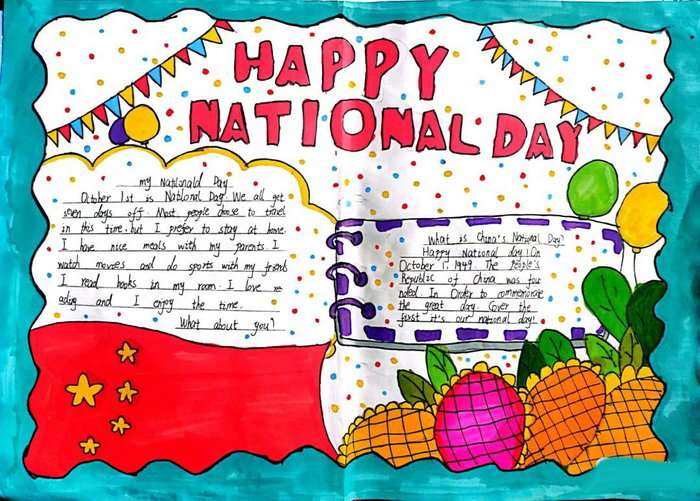 HAPPY
NATIONAL DAY
my Nationald Day
October 1st is National Day. We all get
seven days off. Most people choose to travel
in this time. but I prefer to stay at home.
I have nice meals with my parents. I
watch movies and do sports with my friends
I read books in my room. I love re
ading and I enjoy the time.
What about you?
What is China's National Day?
Happy National day! On
October 1. 1949. The People's
Republic of China was fou
nded. In Order to commemorate
the great day. Cover the
first it's our national day!